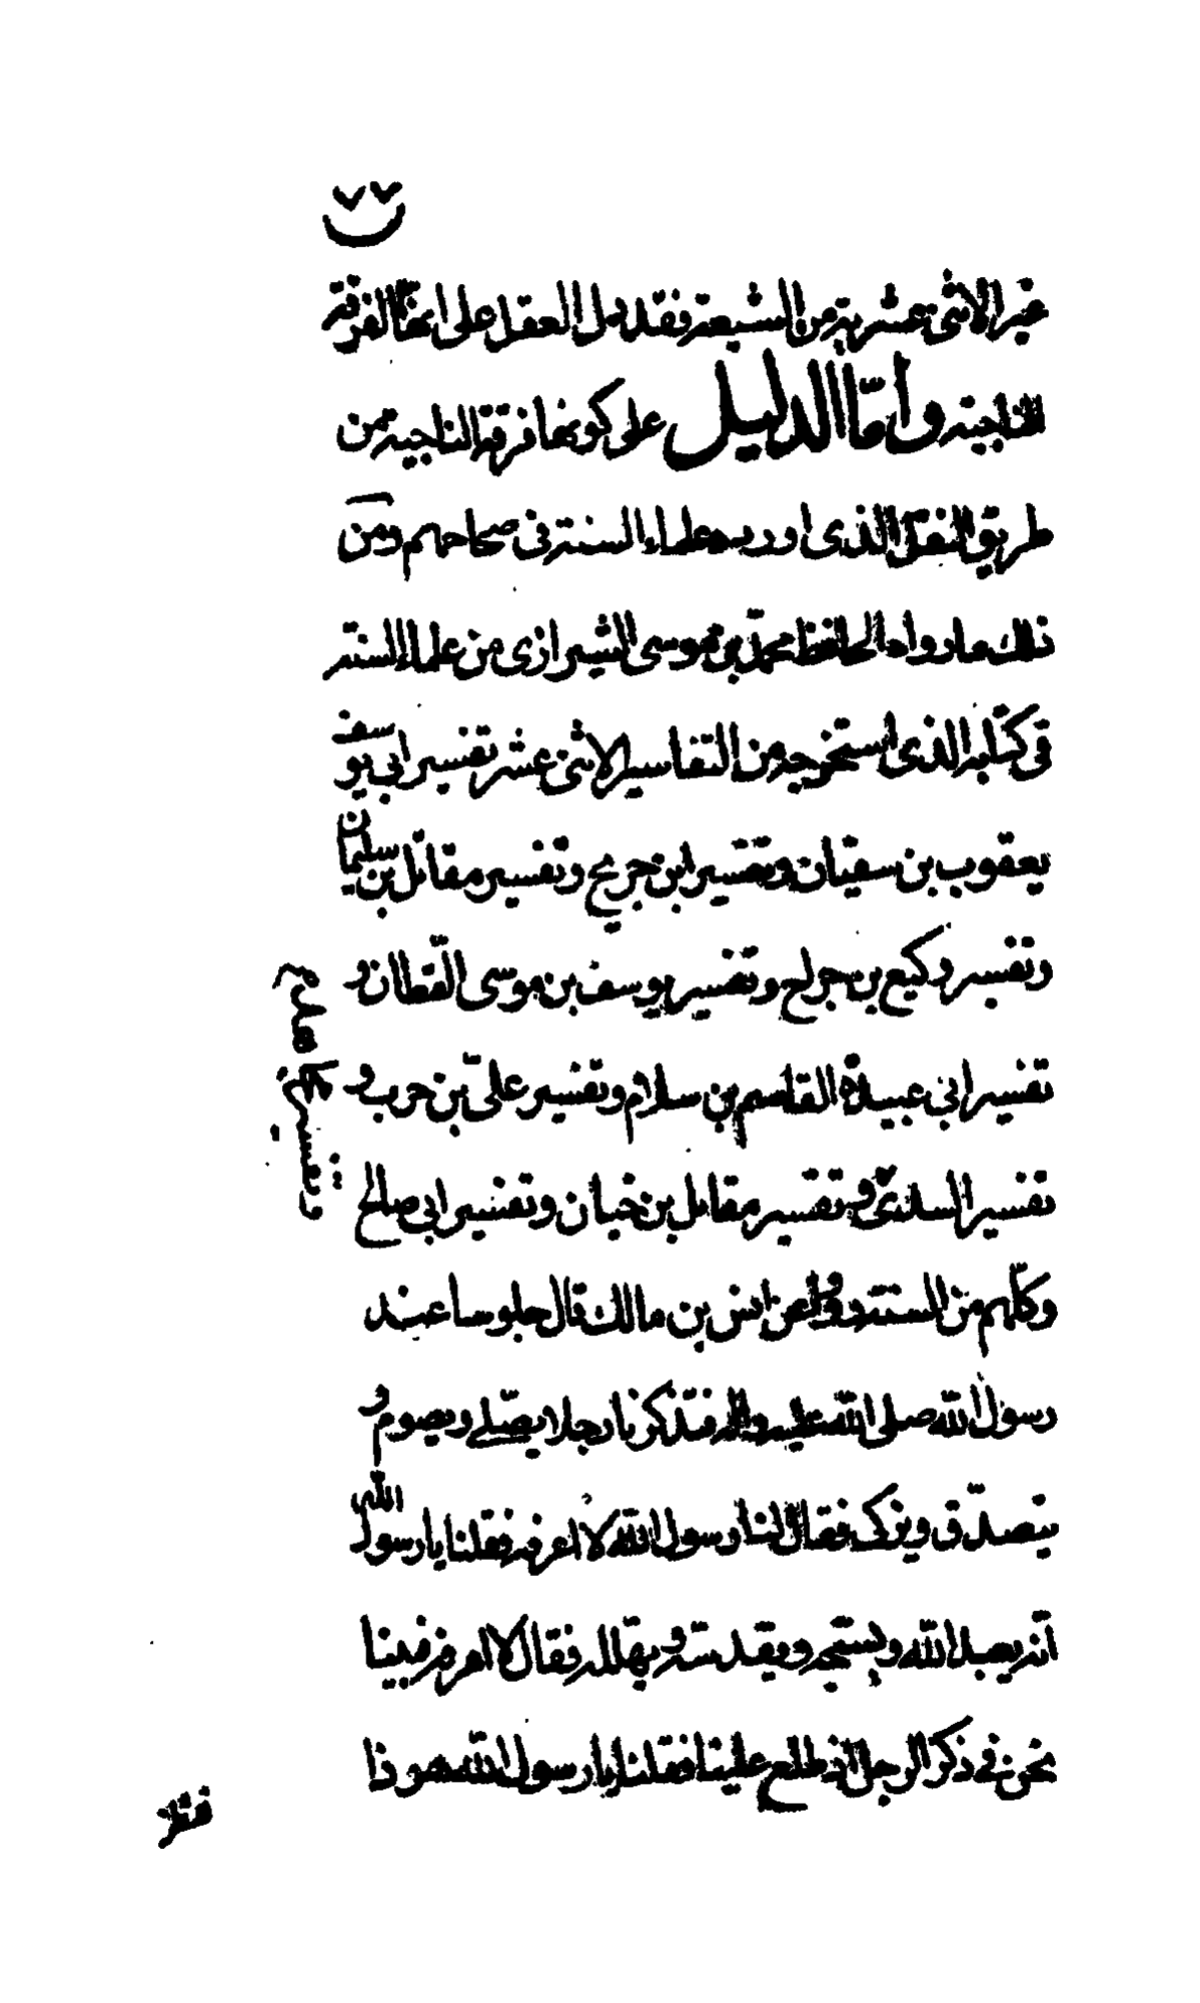 غير الاثنى عشرية من الشيعة فقد دل العقل على انها الفرقة
الناجية وأمّا الدليل على كونها فرقة الناجية من
طريق النقل الذى اورده علماء السنة فى صحاحهم ومن
ذلك ما رواه الحافظ محمّد بن موسى الشيرازى من علماء السنة
فى كتابه الذى استخرجه من التفاسير الاثنى عشر تفسير ابى يوسف
يعقوب بن سفيان وتفسير ابن جريح وتفسير مقاتل بن سليمان
وتفسير وكيع بن جراح وتفسير يوسف بن موسى القطان و
تفسير ابى عبيدة القاسم بن سلام وتفسير علىّ بن حرب و
تفسير السدىّ وتفسير مقاتل بن حيان وتفسير ابى صالح
وكلّهم من السنة عن انس بن مالك قال جلوسا عند
رسول الله صلى الله عليه واله فتذكرنا رجلا يصلّى ويصوم و
يتصدّق ويزكى فقال لنا رسول الله لا اعرفه فقلنا يا رسول الله
انّه يعبد الله ويسبّحه ويقدسه ويهلله فقال لا اعرفه فبينا
نحن فى ذكر الرجل اذ طلع علينا فقلنا يا رسول الله هو ذا
فنظر
وتفسير